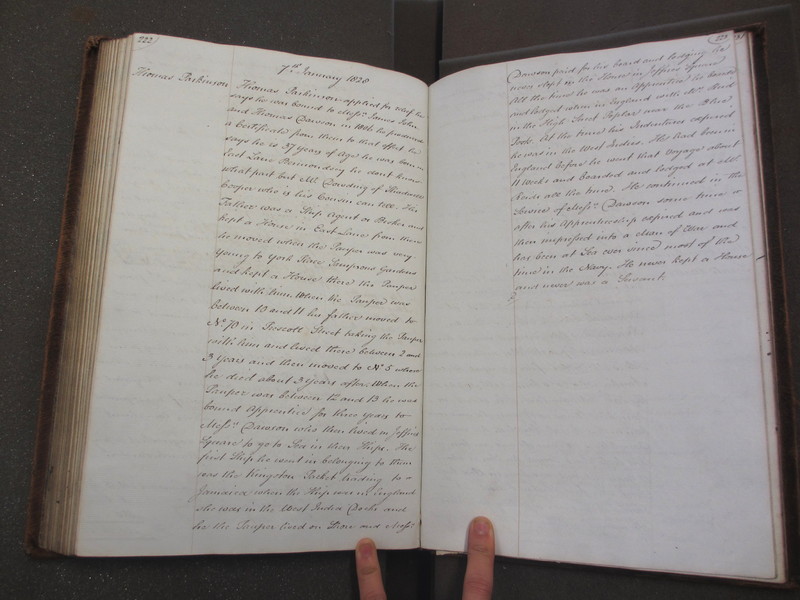 222
7th January 1828
Thomas Parkinson
Thomas Parkinson applied for relief he
says he was bound to Messrs James John
and Thomas Dawson in 1804 he produced
a Certificate from them to that effect he
says he is 37 years of Age he was born in
East Lane Bermondsey he don't know
what part but Mr. Dowding of
Cooper who is his Cousin can tell. His
Father was a Ship Agent or Broker and
kept a House in East Lane from there
he moved when the Pauper was very
young to York Place Gardens
and kept a House there the Pauper
lived with him. When the Pauper was
between 10 and 11 his father moved to
No. 70 in Prescott Street taking the Pauper
with him and lived there between 2 and
3 years and then moved to No. 5 where
he died about 3 years after. When the
Pauper was between 12 and 13 he was
bound Apprentice for three years to
Messrs Dawson who then lived in Jeffries
Square to go to Sea in their Ships. The
first Ship he went in belonging to them
was the Kingston Packet trading to
Jamaica when the Ship was in England
she was in the West India Docks and
he the Pauper lived on Shore and Messrs
223
Dawson paid for his board and lodging he
never slept in the House in Jeffries Square
All the time he was an Apprentice he boarded
and lodged when in England with Mr.
in the High Street Poplar near the
Dock. At the time his Indentures expired
he was in the West Indies. He had been in
England before he went that Voyage about
11 weeks and boarded and lodged at
all the time. He continued in the
Service of Messrs Dawson some time
after his Apprenticeship expired and was
then impressed into a Man of War and
has been at Sea ever since most of the
time in the Navy. He never kept a House
and never was a Servant.